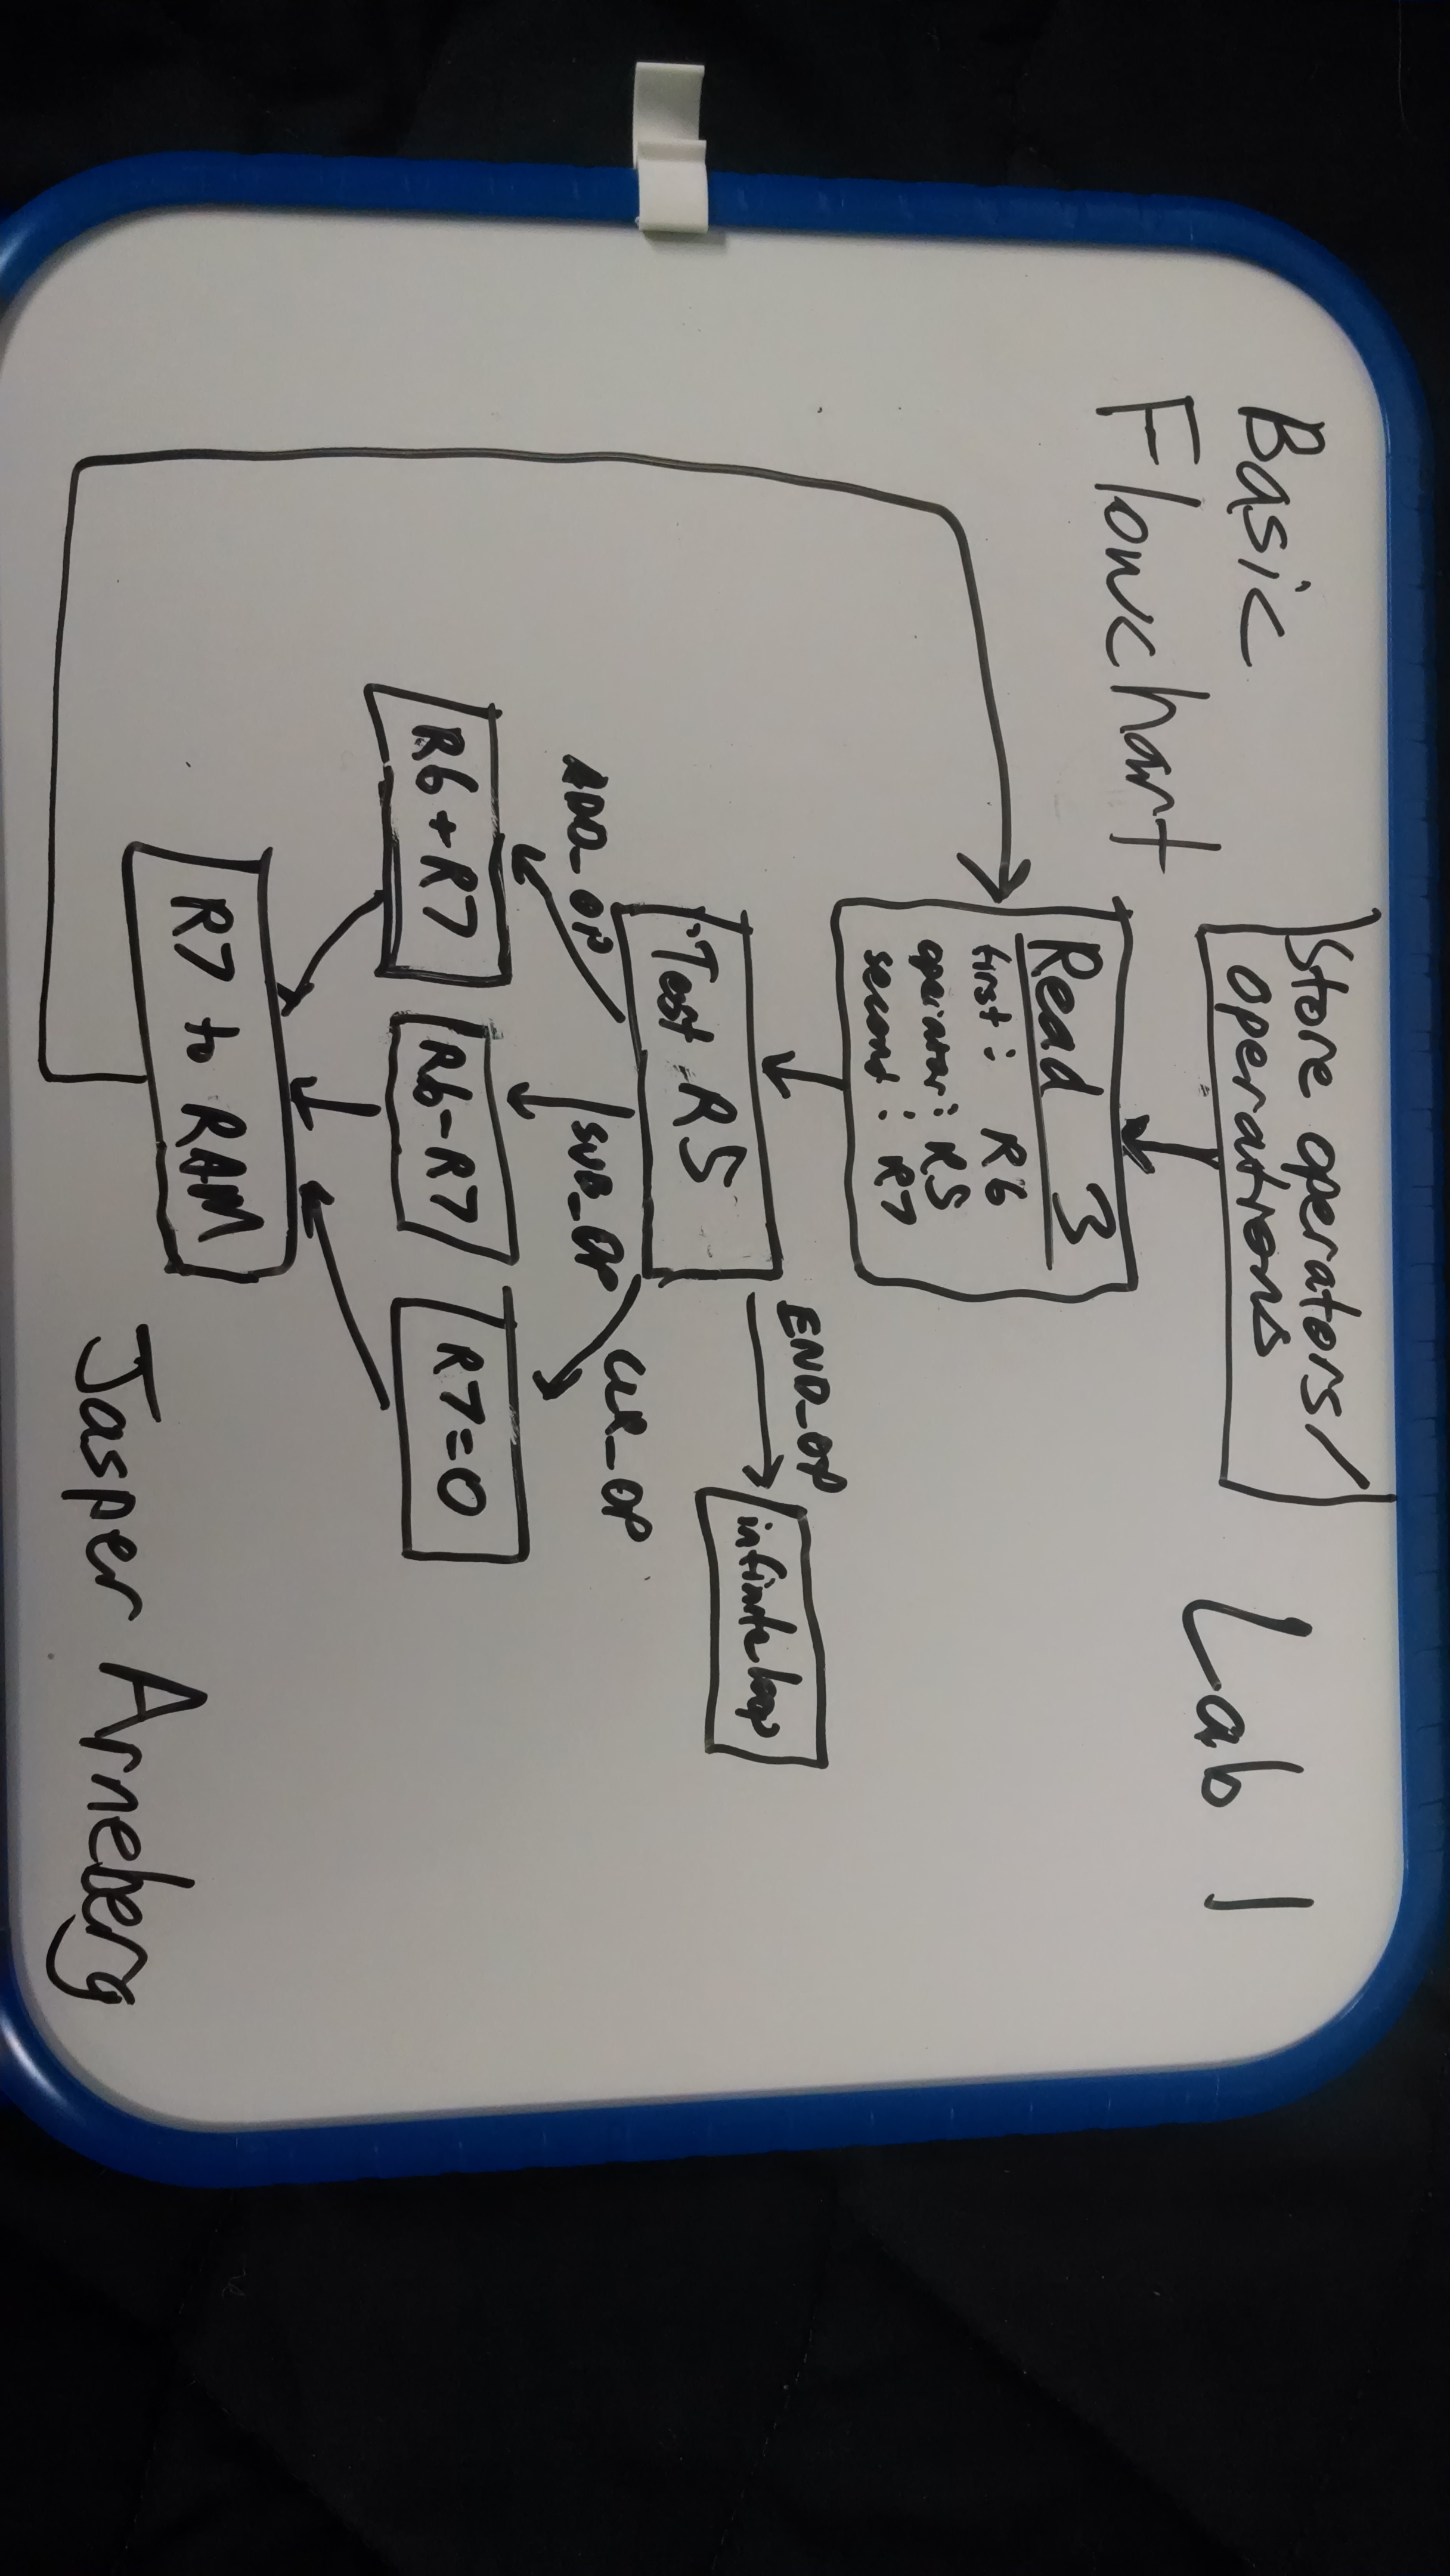 Basic
Flowchart
Lab 1
Store operators/
operations
Read 3
first: R6
operator: R5
second: R7
END_OP
infinite loop
Test R5
ADD_OP
SUB_OP
CLR_OP
R6+R7
R6-R7
R7=0
R7 to RAM
Jasper Arneberg